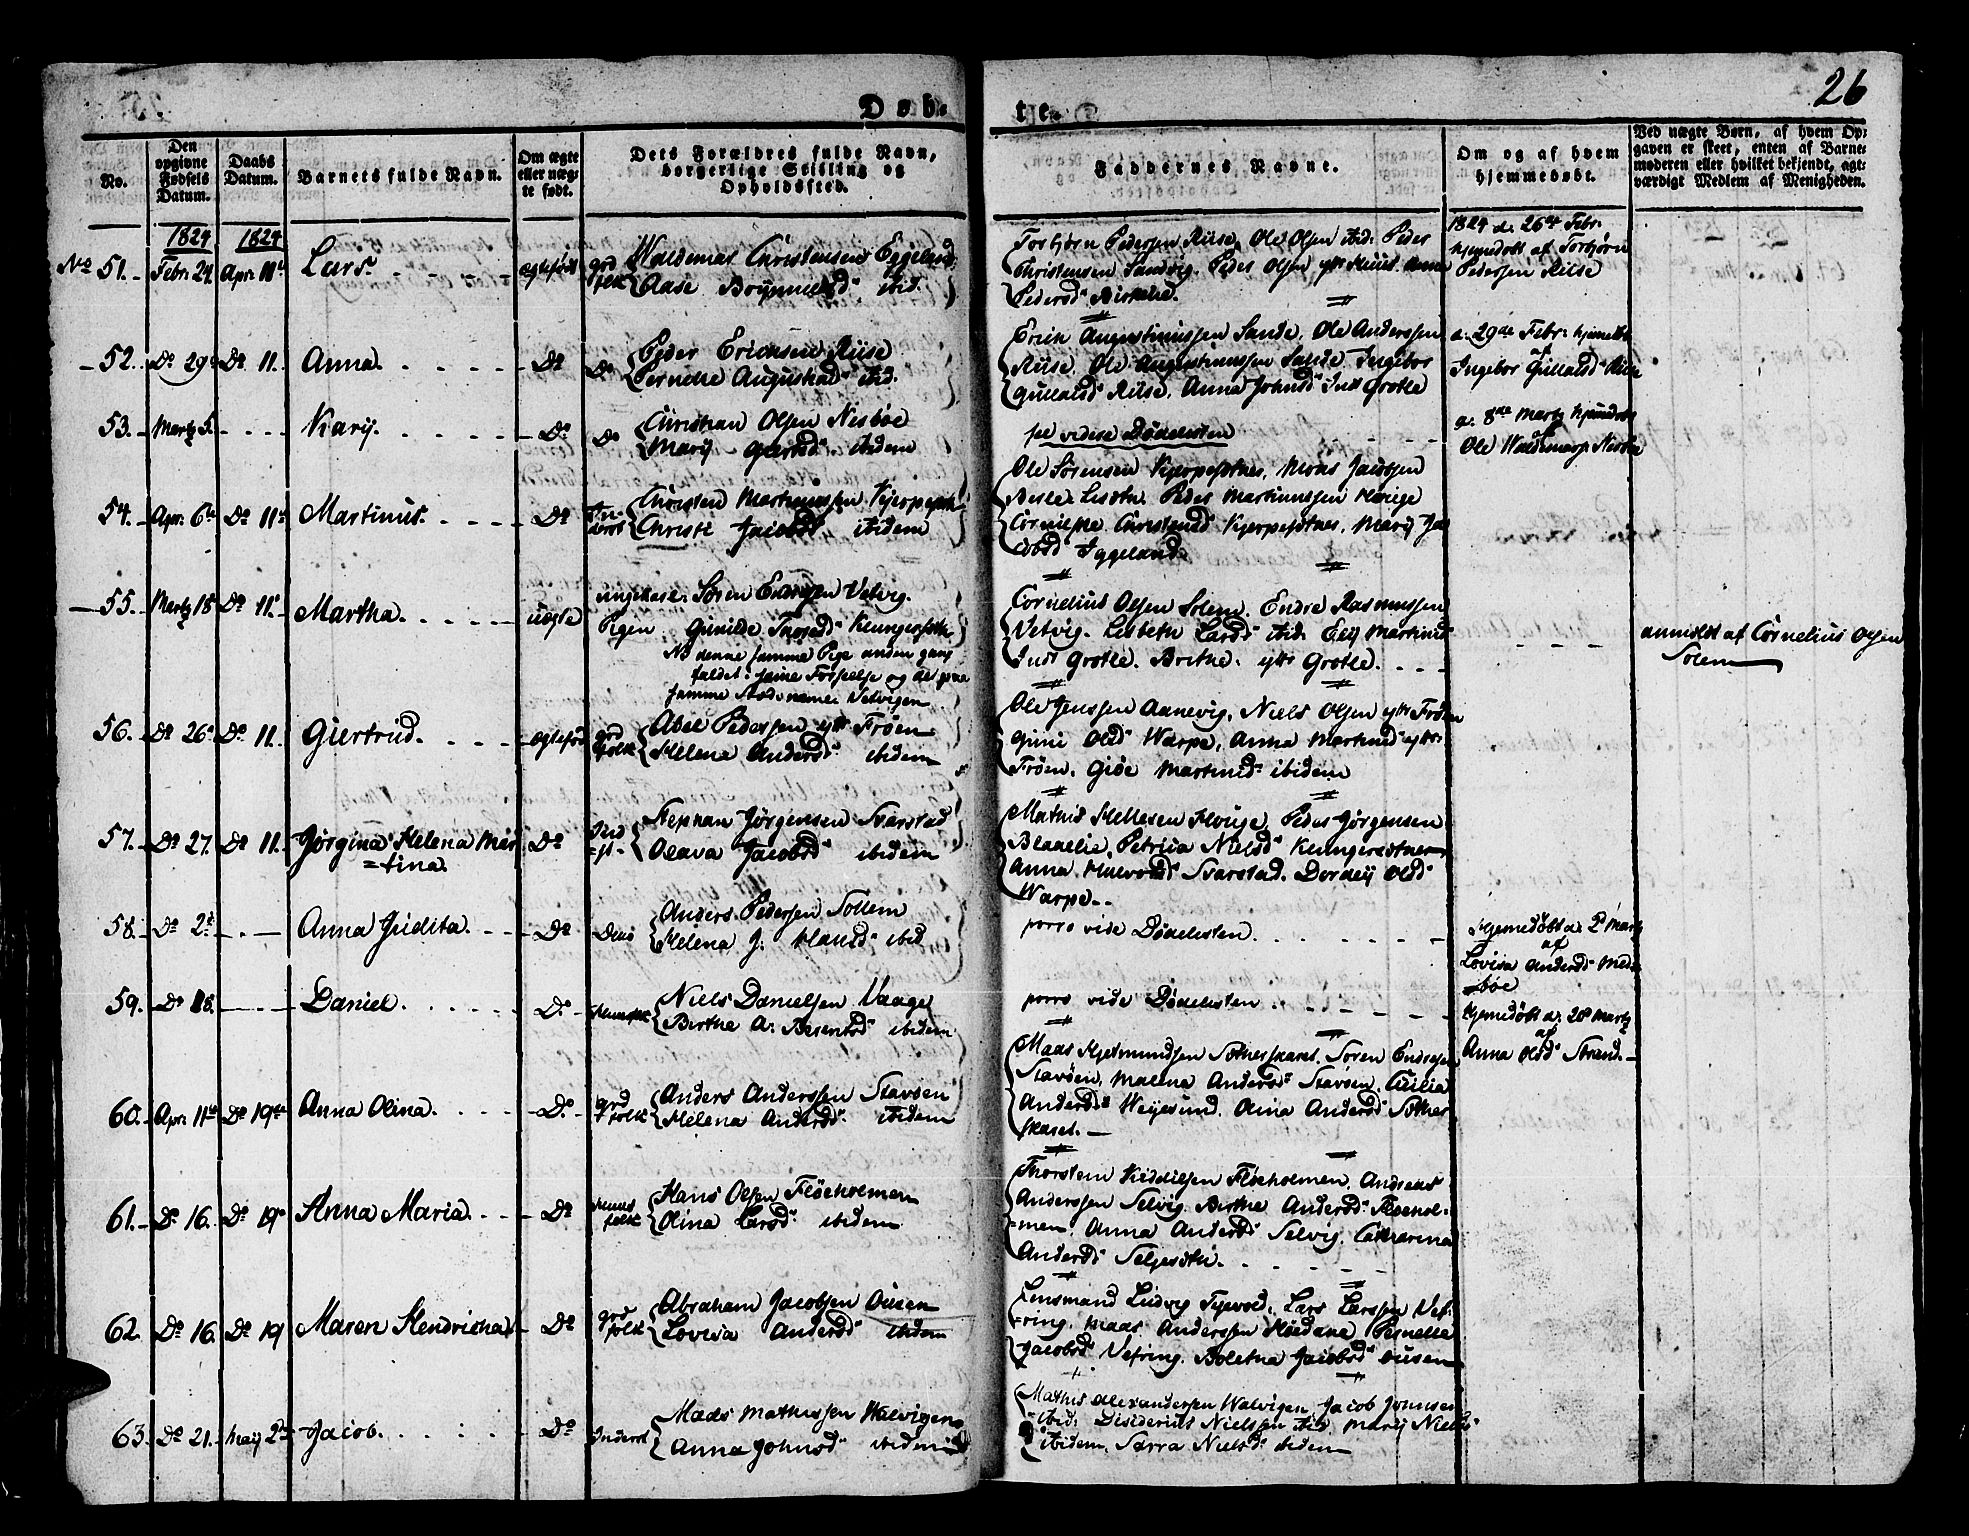 26
Døb-
te.
No.
Den opgivne Fødsels Datum.
Daabs Datum.
Barnets fulde Navn.
Om ægte eller uægte født.
Dets Forældres fulde Navn, borgerlige Stilling og Opholdssted.
Faddernes Navne.
Om og af hvem hjemmedøbt.
Ved uægte Børn, af hvem Opgaven er skeet, enten af Barnemoderen eller hvilket bekjendt, agtværdigt Medlem af Menigheden.
1824 1824
No 51. Febr. 24. Apr. 11te Lars. ægtefødt grdfolk
Waldemar Christensen Eggeland
Aase Brynnuelsd. ibid.
Torbjørn Pedersen Riise, Ole Olsen ibid: Peder
Christensen Sandvig. Peder Olsen yttr Riiis. Anna
Pedersd. Birkelie.
1824 d. 26de Febr.
hjemdøbt af Torbjørn
Pedersen Riise
52. Do 29de Do 11. Anna. Do Do
Peder Ericksen Riise
Pernelle Augustsd. ibid.
Erick Augustinussen Sande, Ole Anderssen
Riise, Ole Augustinussen Sande Ingebor
Gullaksd. Riise, Anna Johnsd. Indr Grotle
d. 29de Febr. hjemdbt
af
Ingebor Gullaksd. Riise
53. Martz 5. Karij. Do Do
Christian Olsen Nesbøe
Marij Giertsd. ibidem
see videre Dødelisten
d. 8de Martz hjemdøbt
af
Ole Waldemars. Nesbøe
54. Apr. 6te Do 11te Martinus. Do
Christen Martinussen
Christi Jacobsd. ibidem
Ole Sørensen Kjerpesætnes, Mons Jacobsen
Peder Martinussen Houge
Cornelie Christensd. Kjerpesætnes, Marij Ja-
cobsd. Iggeland.
55. Martz 18 Do 11te Martha. uægte
ungekarl. Søren Endresen Vetvig.
Pigen. Gunilde
NB denne samme Pige anden gang
faldet. samme Sted
Cornelius Olsen Solem. Endre Rasmussen
Vetvig. Lisbeth Larsd. ibid. Elij Martinusd.
Indr Grotle. Brithe. yttr Grotle.
anmeldt af Cornelius Olsen
Solem
56. Do 26de Do 11. Giertrud. ægtefød grdfolk
Abel Pederssen yttr Frøen
Helena Andersd. ibidem
Ole Jenssen Aanevig, Niels Olsen yttr Frøen
Guni Olsd. Warpe, Anna Martinusd. yttr
Frøen. Giøe Martinusd. ibidem
57. Do 27. Do 11. Jørgina Helena Mar
=tina. Do
Stephan Jørgensen Svarstad
Olava Jacobsd. ibidem
Mathis Hellesen Houge, Peder Jørgensen
Blaalie, Petrica Nielsd.
Anna Halvorsd. Svarstad. Dordeij Olsd.
Warpe.
58. Do 2de Anna Judita. Do
Anders Pedersen Sollem
Helena J. Hansd. ibid
porro vide Dødelisten.
Hjemedøbt d. 2 Martz
af
Lovisa Andersd. Meds
bøe
59. Do 28. Daniel. Do Huusfolk
Niels Danielsen Vaage
Birthe A. ibidem
porro vide Dødelisten
Hjemedøbt d. 28 Martz
af
Anna Olsd. Strand.
60. Apr. 11te Do 19de Anna Olina. Do grd folk
Anders Anderssen Stavøen
Helena Andersd. ibidem
Mads Hjelmundsen Sotherskaret. Søren Endresen
Stavøen, Malena Andersd. Stavøen. Cicilia
Andersd. Weijesund. Olina Andersd. Sother
skaret.
61. Do 16. Do 19de Anna Maria. Do Huusfolk
Hans Olsen Fløeholmen
Olina Larsd. ibidem
Thorsten Kiddilsen Fløeholmen, Andreas
Anderssen Selvig, Birthe Andersd. Fløehol-
men, Anna Andersd. Selvig. Catharina
Andersd.
62. Do 16. Do 19 Maren Hendricha Do grd folk
Abraham Jacobsen Ousen
Lovisa Andersd. ibidem
Lensmand Ludvig Lars Larssen Vef-
ring. Mads Anderssen Hoedane Pernelle
Jacobsd. Vefring. Boletha Jacobsd. Ousen
63. Do 21. Maij 2den Jacob. Do Inderst
Mads Mathissen Walvigen
Anna Johnsd. ibidem
Mathis Alexandersen Walvigen, Jacob Johnsen
ibid: Disiderius Nielssen ibid, Marij Nielsd.
ibidem, Sarra Nielsd. ibidem